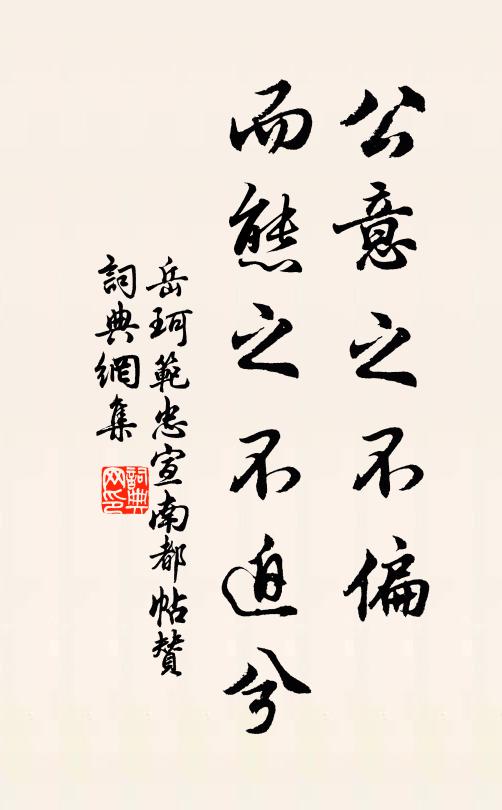 公意之不偏
而態之不迫兮
岳珂範忠宣南都帖贊
詞典網集
詞典
网印